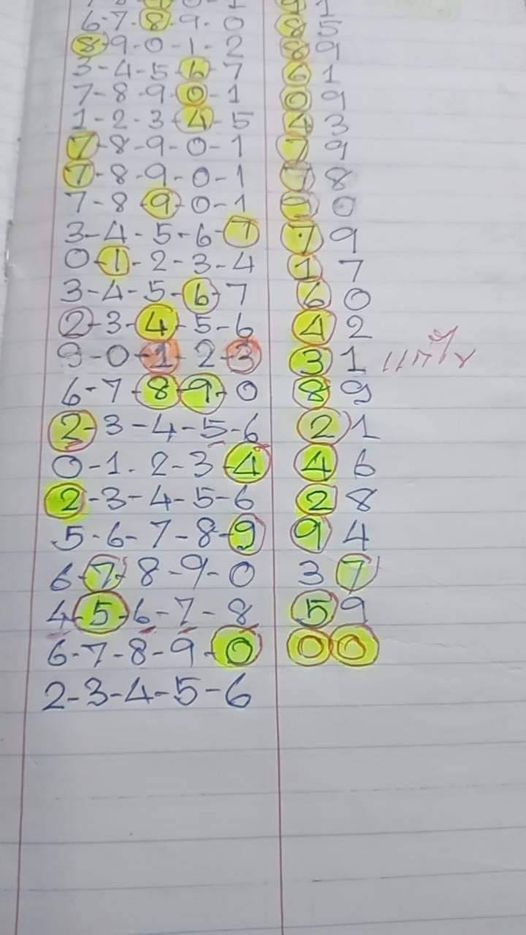 6-7-8-9-0 85
8-9-0-1-2 89
3-4-5-6-7 61
7-8-9-0-1 09
1-2-3-4-5 43
7-8-9-0-1 79
7-8-9-0-1 78
7-8-9-0-1 90
3-4-5-6-7 79
0-1-2-3-4 17
3-4-5-6-7 60
2-3-4-5-6 42
9-0-1-2-3 31 แก้ไข
6-7-8-9-0 89
2-3-4-5-6 21
0-1-2-3-4 46
2-3-4-5-6 28
5-6-7-8-9 94
6-7-8-9-0 37
4-5-6-7-8 59
6-7-8-9-0 00
2-3-4-5-6